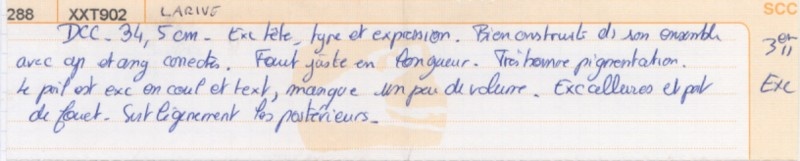 288 XXT902 LARIVE SCC
DCC - 34,5 cm - Exc tête, type et expression. Bien construite ds son ensemble
avec ap et ang corrects. Fouet juste en longueur. Très bonne pigmentation.
le poil est exc en coul et text, manque un peu de volume. Exc allures et port
de fouet. Sort légèrement les postérieurs.
3em
Exc